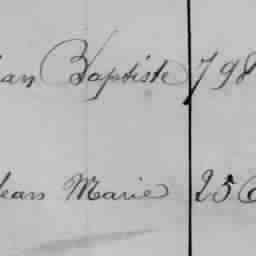 an Baptiste 798
Jean Marie 256